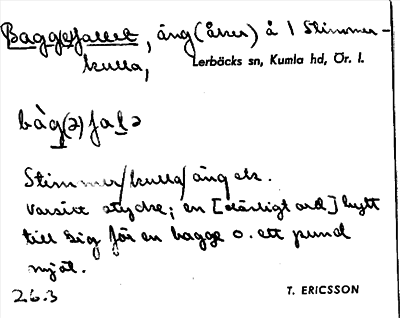 Baggefallet, äng (åker) å 1 Stimmer-
kulla,
Lerbäcks sn, Kumla hd, Ör. l.
bàg(ə)falə
Stimmer/kulla/äng etc.
stycke; en [oläsligt ord] bytt
till sig för en bagge o. ett pund
mjöl.
26.3
T. ERICSSON